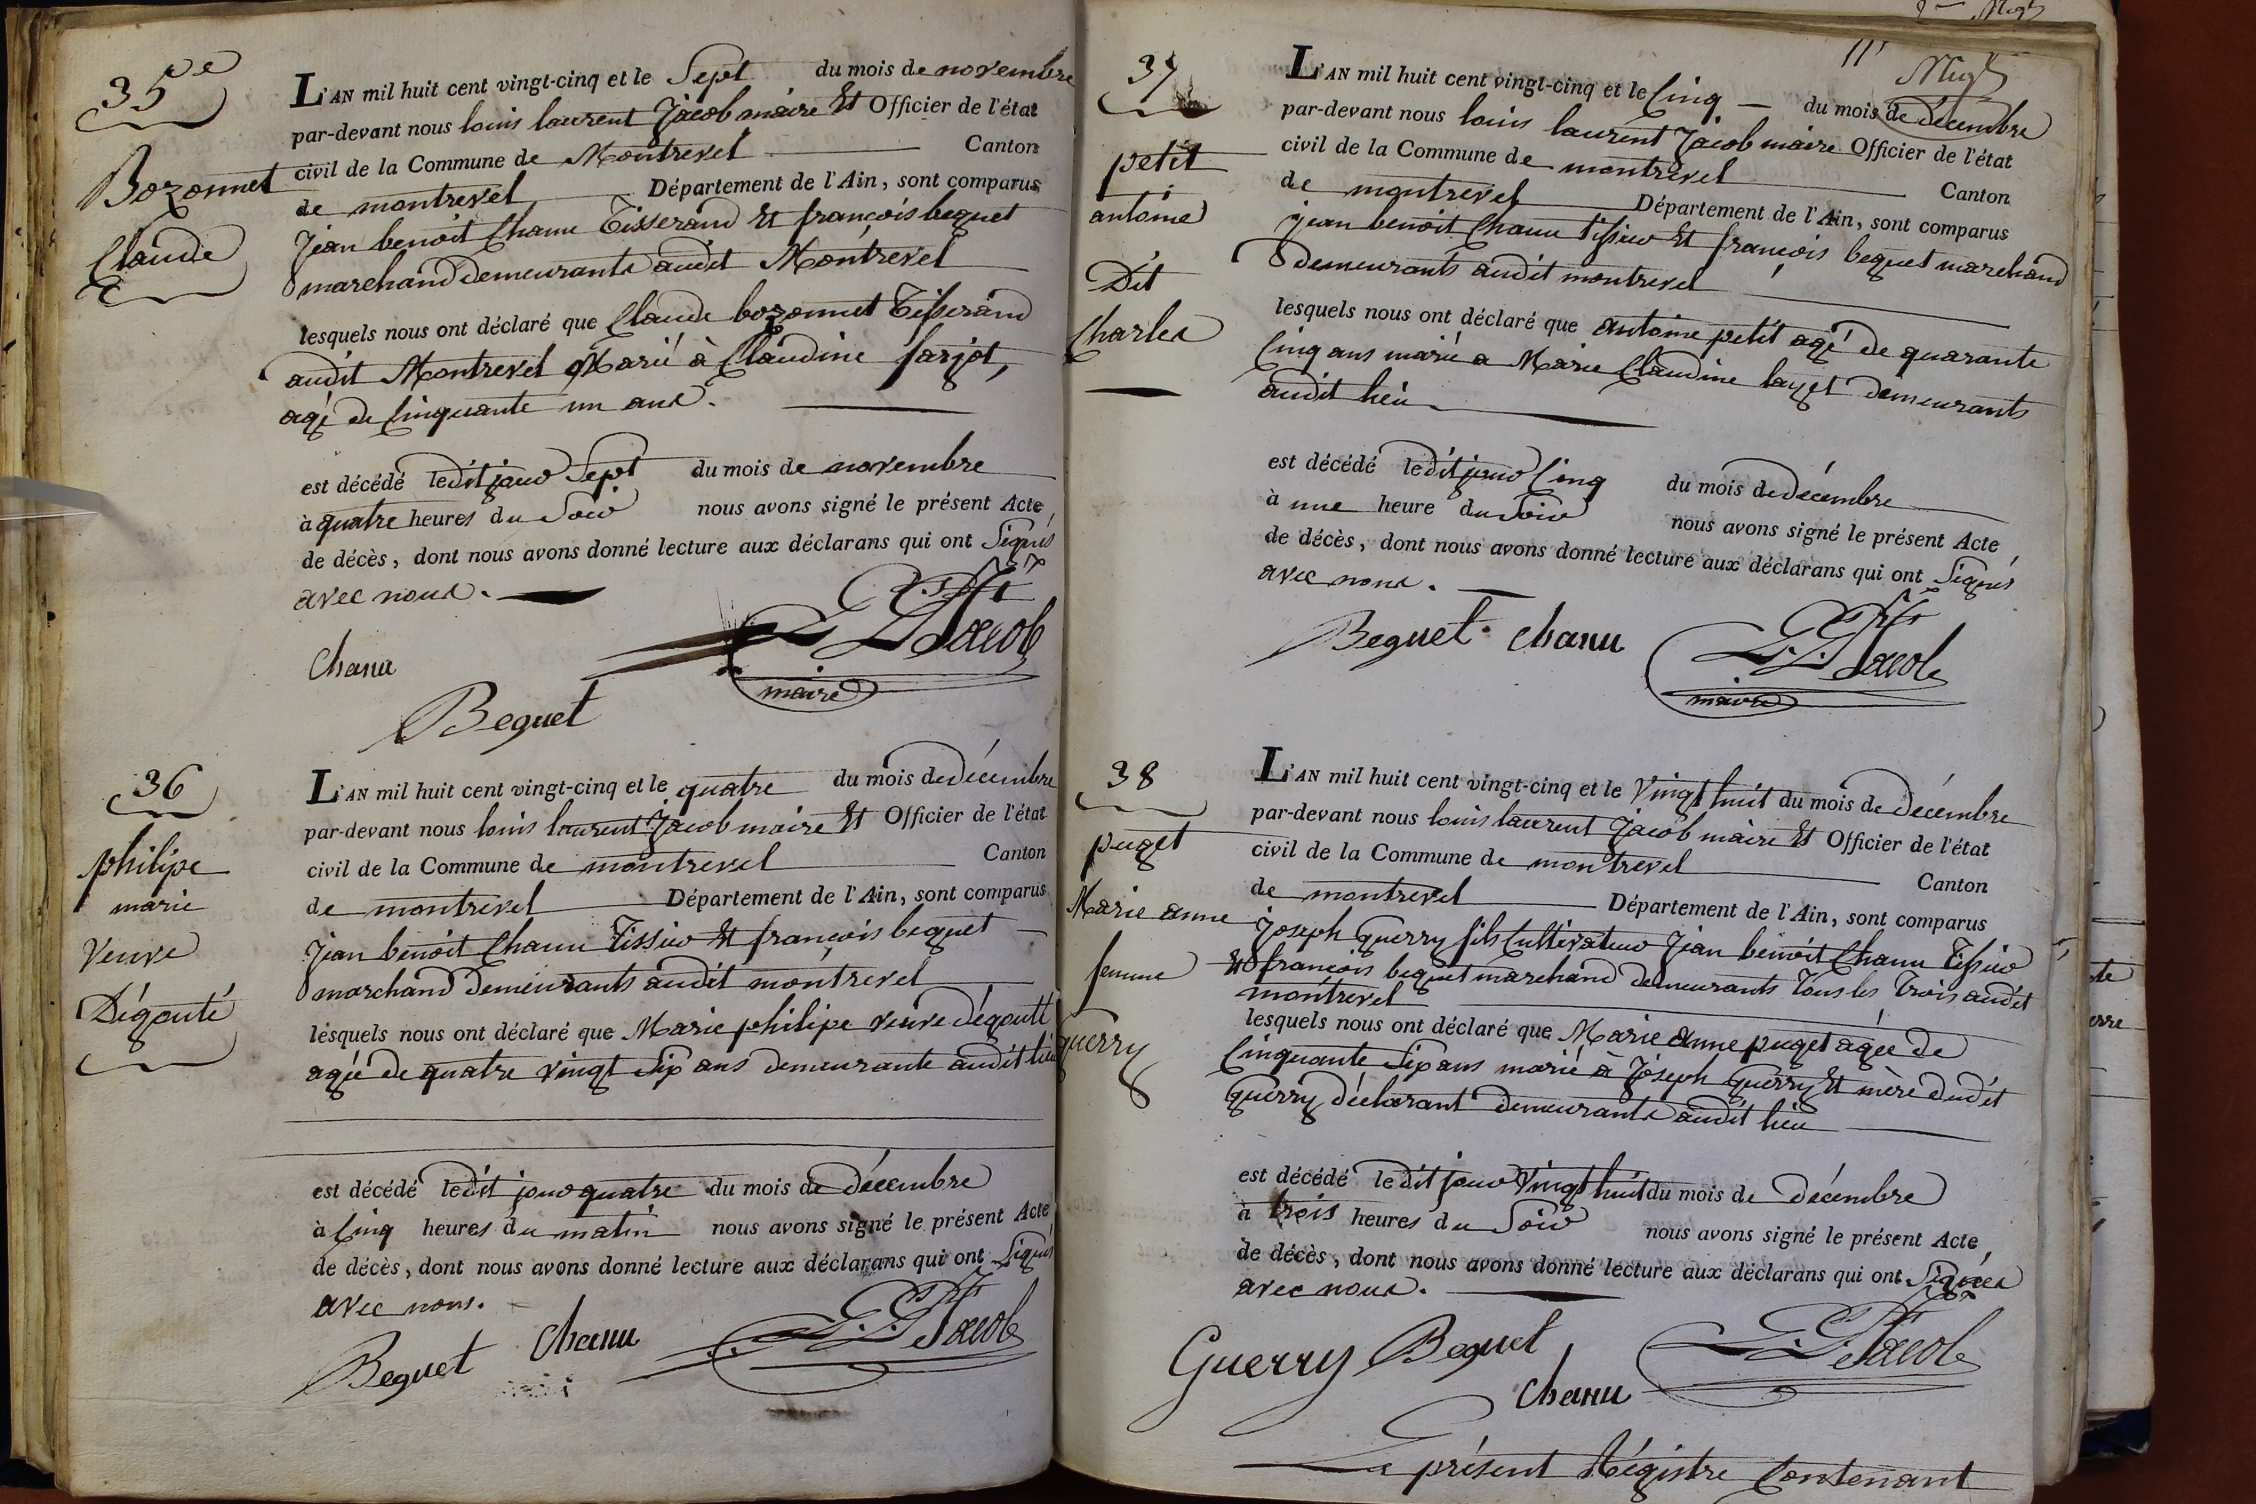 35e
Bozonnet
Claude
L'AN mil huit cent vingt-cinq et le Sept du mois de novembre
par-devant nous louis laurent Jacob maire Et Officier de l'état
civil de la Commune de Montrevel Canton
de montrevel Département de l'Ain, sont comparus
Jean benoit Chanu Tisserand Et françois beguet
marchand demeurants audit Montrevel
lesquels nous ont déclaré que Claude bozonnet Tisserand
audit Montrevel Marié à Claudine farjot,
agé de Cinquante un ans.
est décédé ledit jour Sept du mois de novembre
à quatre heures du Soir nous avons signé le présent Acte
de décès, dont nous avons donné lecture aux déclarans qui ont Signés
avec nous.
L. L. Jacob
Chanu
maire
Beguet
36
philipe
marie
Veuve
Dégouté
L'AN mil huit cent vingt-cinq et le quatre du mois de décembre
par-devant nous louis laurent Jacob maire Et Officier de l'état
civil de la Commune de montrevel Canton
de montrevel Département de l'Ain, sont comparus
Jean benoit Chanu Tissier Et françois beguet
marchand demeurants audit montrevel
lesquels nous ont déclaré que Marie philipe veuve dégoutt
agée de quatre vingt Six ans demeurante audit lieu
est décédé ledit jour quatre du mois de décembre
à Cinq heures du matin nous avons signé le présent Acte
de décès, dont nous avons donné lecture aux déclarans qui ont Signés
avec nous.
Beguet Chanu L. L. Jacob
11e Nugt
37
petit
antoine
Dit
Charles
L'AN mil huit cent vingt-cinq et le Cinq du mois de décembre
par-devant nous louis laurent Jacob maire Officier de l'état
civil de la Commune de montrevel Canton
de montrevel Département de l'Ain, sont comparus
Jean benoit Chanu tissier Et françois beguet marchand
demeurants audit montrevel
lesquels nous ont déclaré que antoine petit agé de quarante
Cinq ans marié a Marie Claudine layet demeurants
audit lieu
est décédé ledit jour Cinq du mois de décembre
à une heure du Soir nous avons signé le présent Acte
de décès, dont nous avons donné lecture aux déclarans qui ont Signés
avec nous.
Beguet Chanu L. L. Jacob
maire
38
puget
Marie anne
femme
guerry
L'AN mil huit cent vingt-cinq et le Vingt huit du mois de décembre
par-devant nous louis laurent Jacob maire Et Officier de l'état
civil de la Commune de montrevel Canton
de montrevel Département de l'Ain, sont comparus
Joseph Guerry fils Cultivateur Jean benoit Chanu Tissier
Et françois beguet marchand demeurants Tous les Trois audit
montrevel
lesquels nous ont déclaré que Marie Anne puget agée de
Cinquante Six ans marié à Joseph Guerry Et mère dudit
Guerry déclarant demeurants audit lieu
est décédé ledit jour Vingt huit du mois de décembre
à trois heures du Soir nous avons signé le présent Acte
de décès, dont nous avons donné lecture aux déclarans qui ont Signées
avec nous.
Guerry Beguet L. L. Jacob
Chanu
Le présent Régistre Contenant